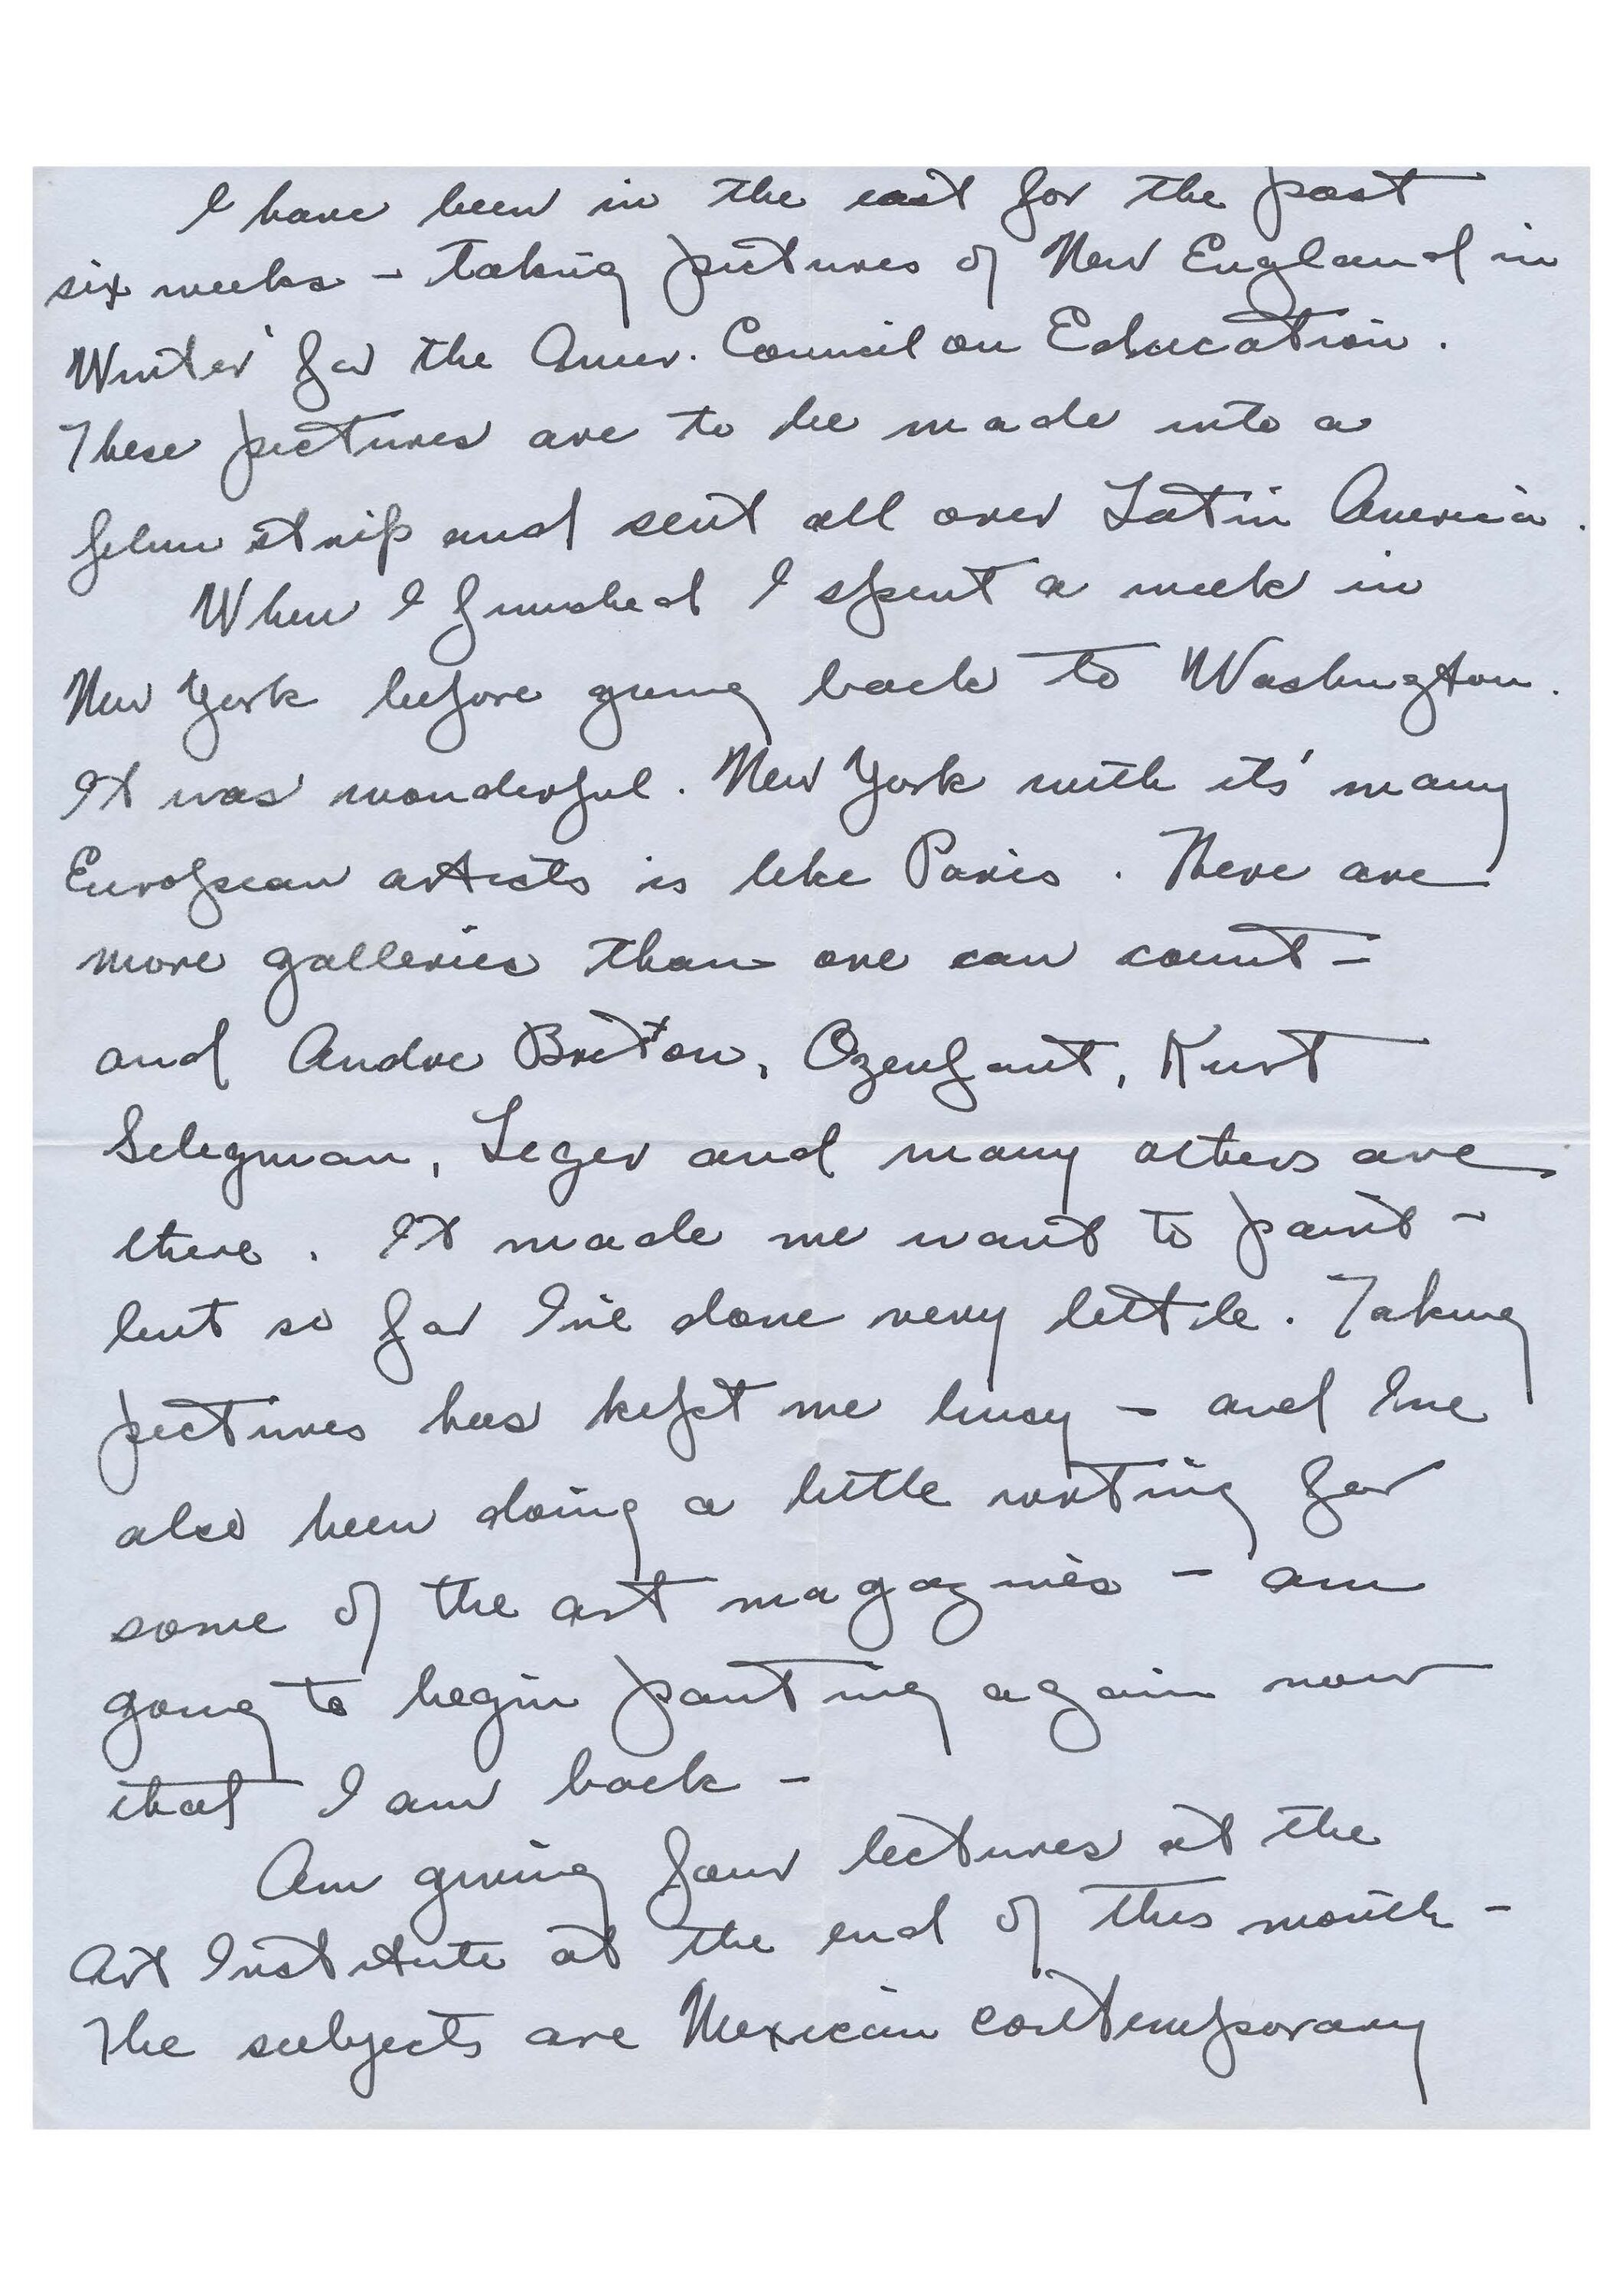 I have been in the east for the past
six weeks - taking pictures of New England in
Winter for the Amer. Council on Education.
These pictures are to be made into a
film strip and sent all over Latin America.
When I finished I spent a week in
New York before going back to Washington.
It was wonderful. New York with its' many
European artists is like Paris. There are
more galleries than one can count -
and Andre Bretton, Ozenfant, Kurt
Seligman, Leger and many others are
there. It made me want to paint -
but so far I've done very little. Taking
pictures has kept me busy - and I've
also been doing a little writing for
some of the art magazines - am
going to begin painting again now
that I am back -
Am giving four lectures at the
Art Institute at the end of this month -
The subjects are Mexican contemporary